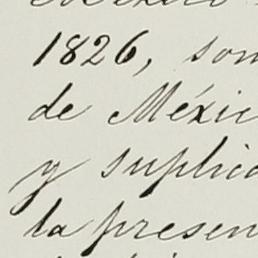 1826, son
de Méxic
y suplic
la presen